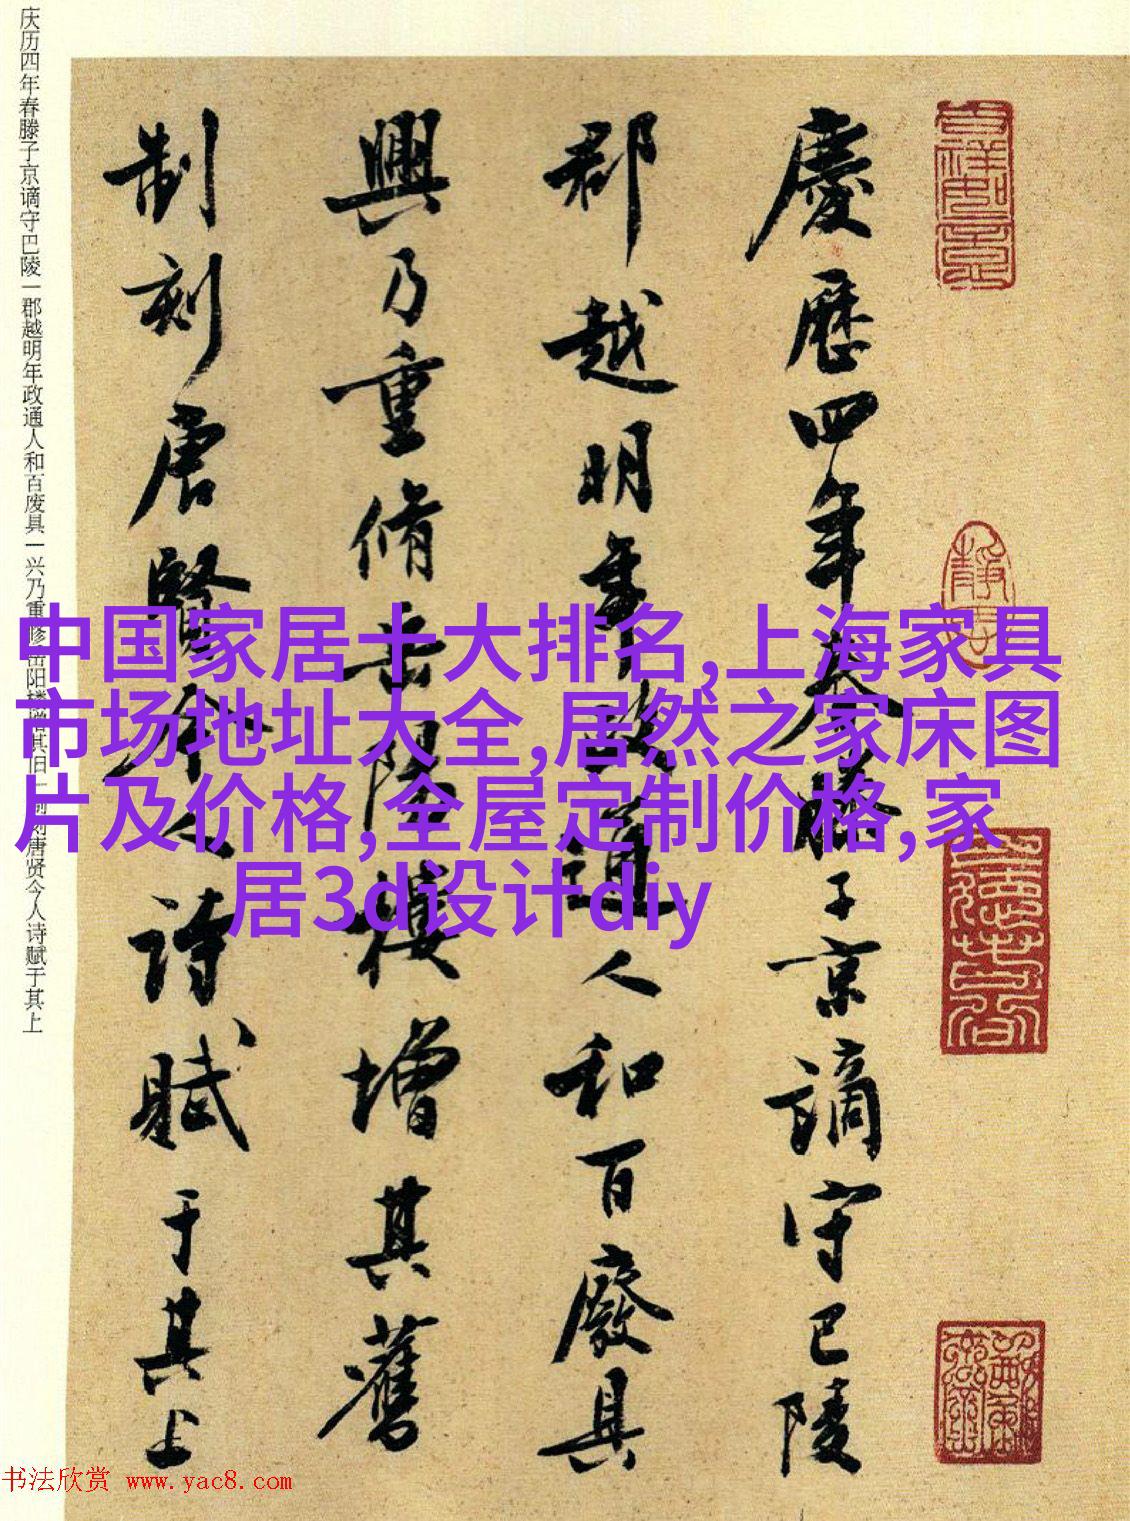 慶歷四年春滕子京謫守巴陵
郡越明年政通人和百廢具
興乃重脩岳陽樓增其舊
制刻唐賢今人詩賦于其上
庆历四年春滕子京谪守巴陵一郡越明年政通人和百废具一兴乃重修岳阳楼增其旧一制刻唐贤今人诗赋于其上
中国家居十大排名,上海家具
市场地址大全,居然之家床图
片及价格,全屋定制价格,家
居3d设计diy
书法欣赏 www.yac8.com